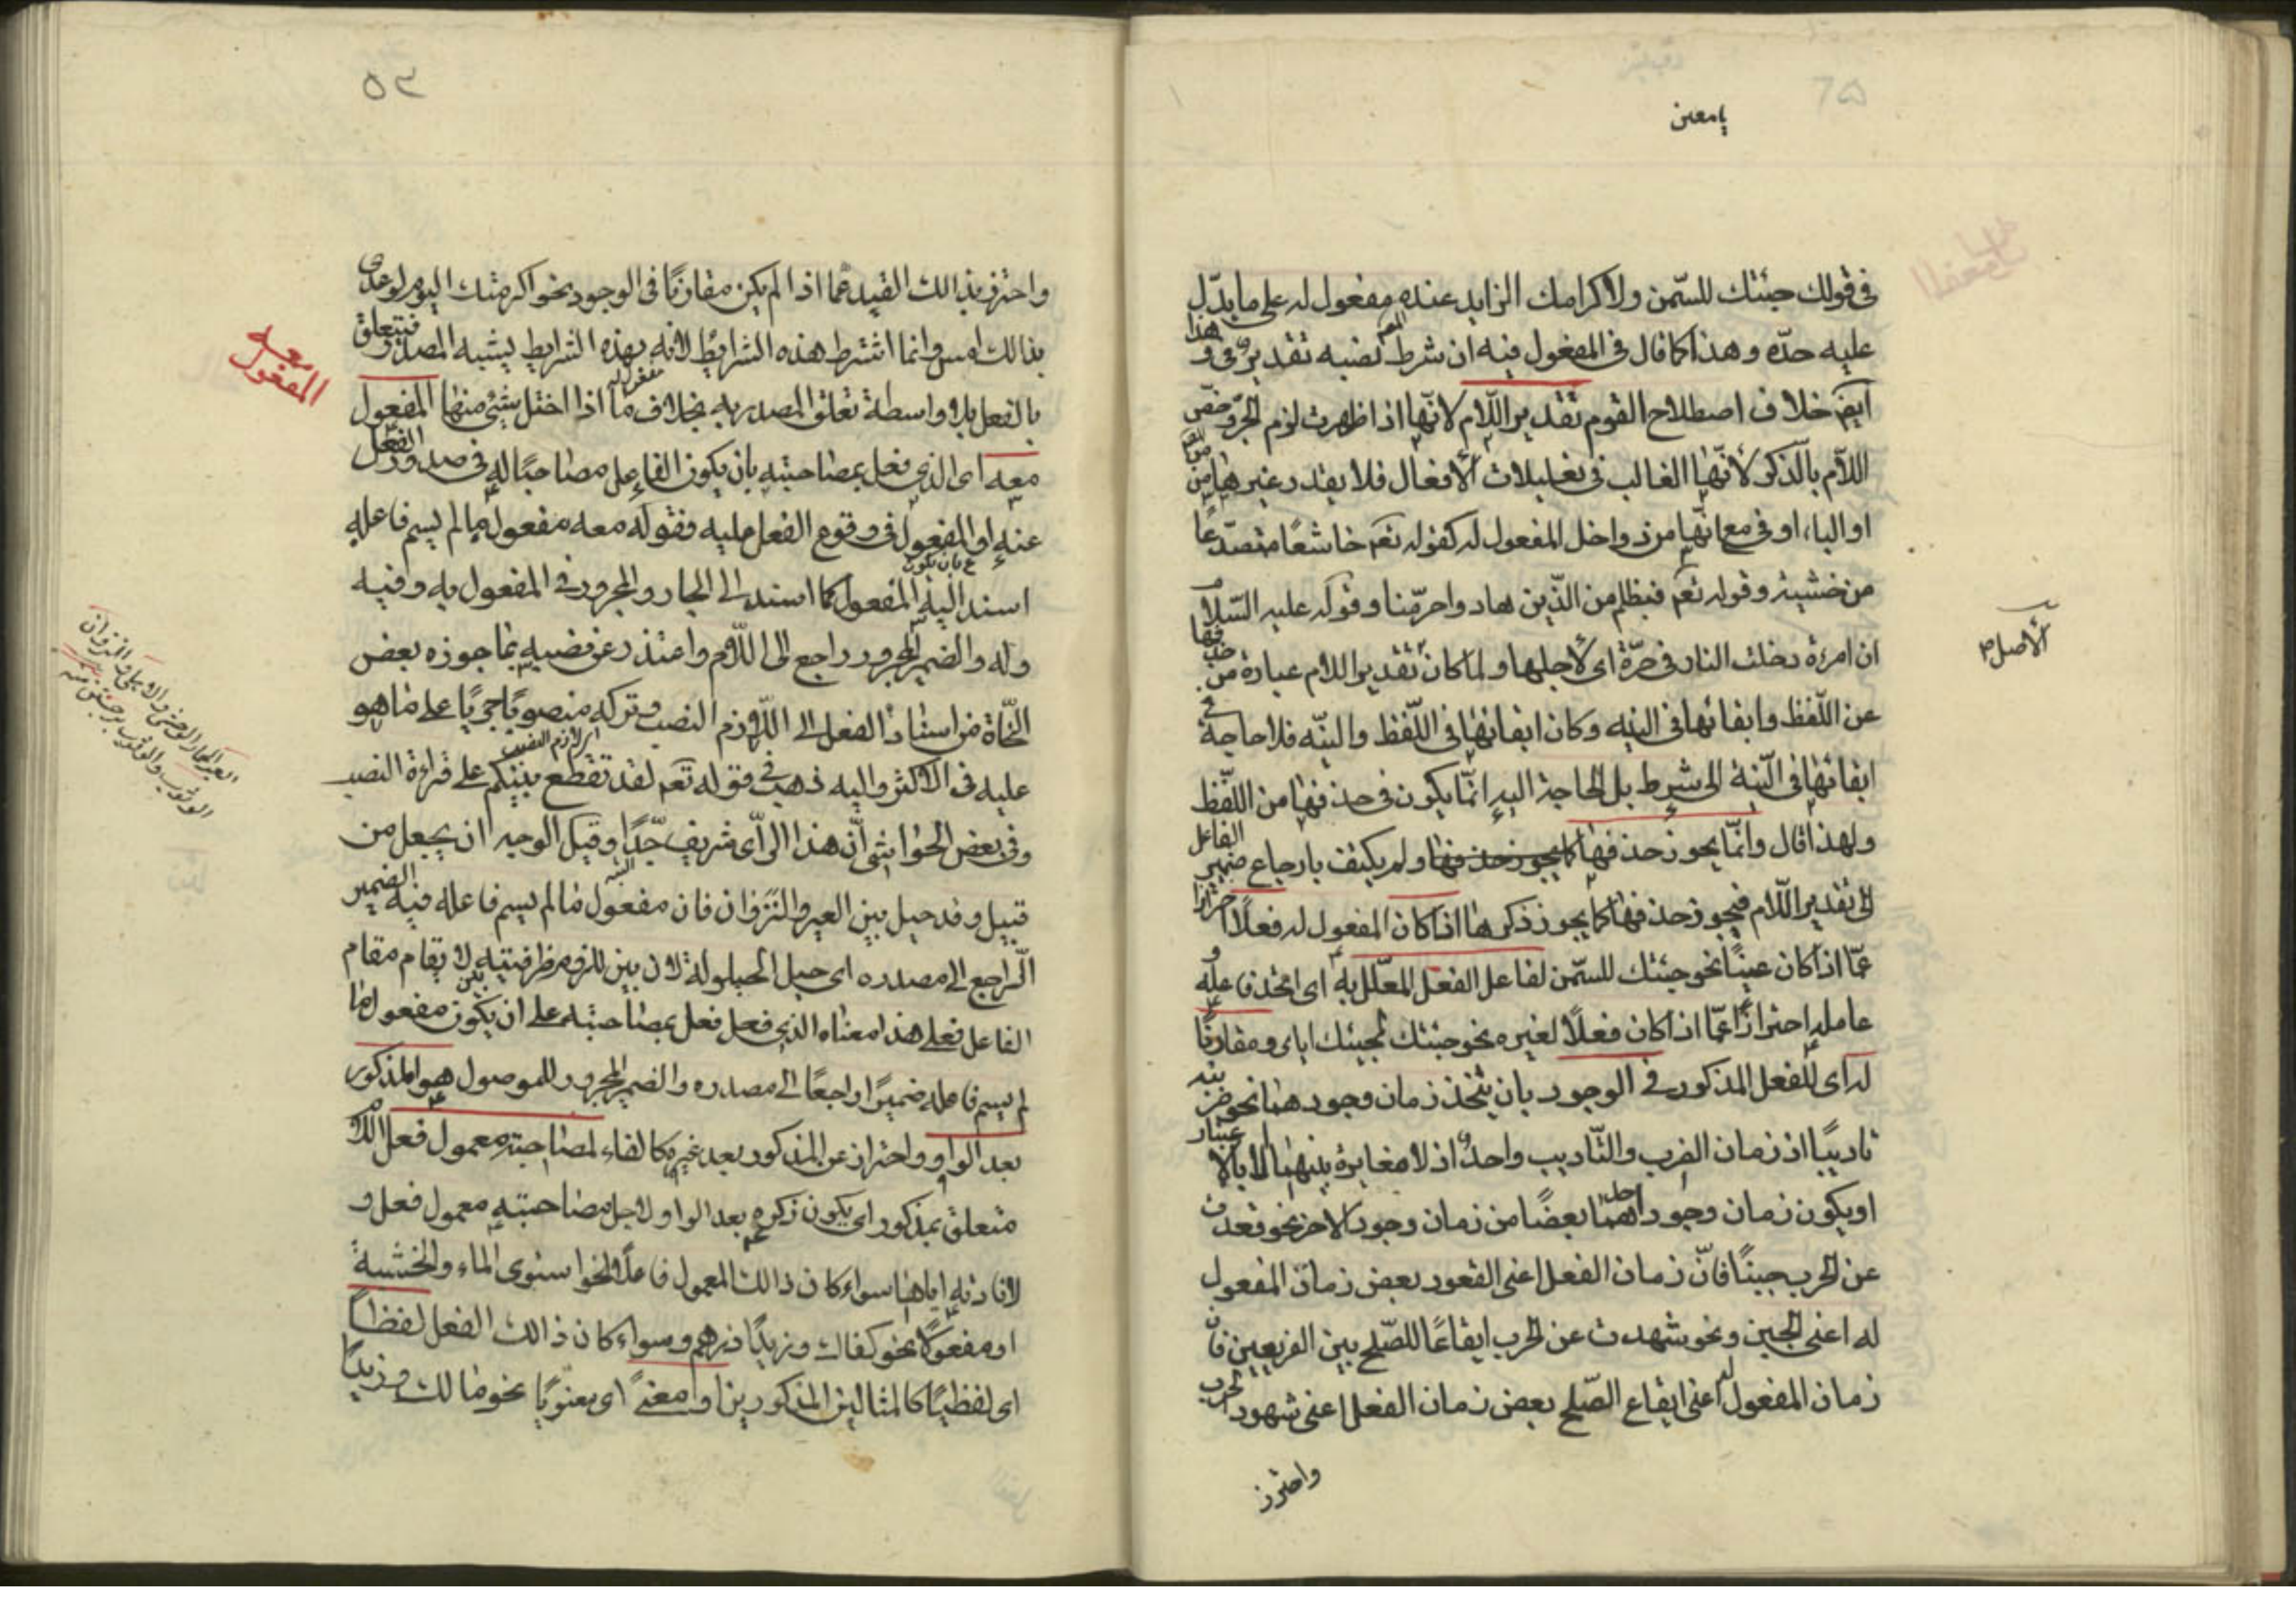 يا معين
في قولك جئتك للسّمن ولاكرامك الزايد عنده مفعول له على ما يدّل
عليه حدّه وهذا كما قال في المفعول فيه ان شرط نصبه تقدير في وهذا
ايضً خلاف اصطلاح القوم تقدير اللّام لانّها اذا ظهرت لزم الجرّ وخصّ
اللّام بالذكر لانّها الغالب في تعليلات الافعال فلا يقدر غيرها من
او الباء او في مع انّها من دواخل المفعول له كقوله تعم خاشعًا متصدّعًا
من خشية وقوله تعم فبظلم من الذّين هاد واحرّمنا وقوله عليه السّلام
ان امرءة دخلت النار في هرّة اى لاجلها ولما كان تقدير اللام عبارة من حذفها
عن اللّفظ وابقائها في النيه وكان ابقائها في اللّفظ والنيّه فلا حاجة في
ابقائها في النّية الى شرط بل الحاجة اليه انّما يكون في حذفها من اللّفظ
ولهذا قال وانّما يجوز حذفها كما يجوز حذفها ولم يكتف بارجاع ضمير الفاعل
الى تقدير اللّام فيجوز حذفها كما يجوز ذكرها اذا كان المفعول له فعلًا احترازا
عمّا اذا كان عينًا نحو جئتك للسّمن لفاعل الفعل المعلّل به اى اتحد فاعله و
عامله احترازًا عمّا اذا كان فعلًا لغيره نحو جئتك لمجيئك اياى ومقارنًا
له اى للفعل المذكور في الوجود بان يتحد زمان وجودهما نحو ضربته
تاديبًا اذ زمان الضرب والتّاديب واحد اذ لا مغايرة بينهما الا بالاعتبار
او يكون زمان وجود احدهما بعضًا من زمان وجود الاخر نحو قعدت
عن الحرب جبنًا فانّ زمان الفعل اعنى القعود بعض زمان المفعول
له اعنى الجبن ونحو شهدت عن الحرب ايقاعًا للصّلح بين الفريقين فان
زمان المفعول له اعنى ايقاع الصّلح بعض زمان الفعل اعنى شهود الحرب
واحترز
الاصل
٥٣
واحترز بذالك القيد عمّا اذا لم يكن مقارنًا في الوجود نحو اكرمتك اليوم لوعدى
بذالك امس وانما اشترط هذه الشرايط لانه بهذه الشرايط يشبه المصدر فيتعلق
بالفعل بلا واسطة تعلق المصدر به بخلاف ما اذا اختل شئ منها المفعول
معه اى الذى فعل بمصاحبته بان يكون الفاعل مصاحبًا له في صدور الفعل
عنه او المفعول في وقوع الفعل عليه فقوله معه مفعول ما لم يسم فاعله
اسند اليه المفعول كما اسند الى الجار والمجرور في المفعول به وفيه
وله والضمير المجرور راجع الى اللّام واعتذر عن نصبه بما جوزه بعض
النحّاة من اسناد الفعل الى اللّازم النصب وتركه منصوبًا جريًا على ما هو
عليه في الاكثر واليه ذهب في قوله تعم لقد تقطع بينكم على قراءة النصب
وفي بعض الحواشى انّ هذا الرّأى شريف جّدًا وقيل الوجه ان يجعل من
قبيل وقد حيل بين العير والنَزَوان فان مفعول ما لم يسم فاعله فيه الضمير
الّراجع الى مصدره اى حيل الحيلولة لان بين للزوم ظرفيته لا يقام مقام
الفاعل فعلى هذا معناه الذى فعل فعل بمصاحبته على ان يكون مفعول ما
لم يسم فاعله ضميرًا راجعًا الى مصدره والضمير المجرور للموصول هو المذكور
بعد الواو واحتراز عن المذكور بعد غيره كالفاء لمصاحبة معمول فعل اللام
متعلق بمذكور اى يكون ذكره بعد الواو لاجل مصاحبته معمول فعل و
لافادته اياها سواء كان ذالك المعمول فاعلًا نحو استوى الماء والخشبةَ
او مفعولًا نحو كفاك وزيدًا درهم وسواء كان ذالك الفعل لفظًا
اى لفظيًا كالمثالين المذكورين او معنىً اى معنويًا نحو ما لك وزيدًا
المفعول معه